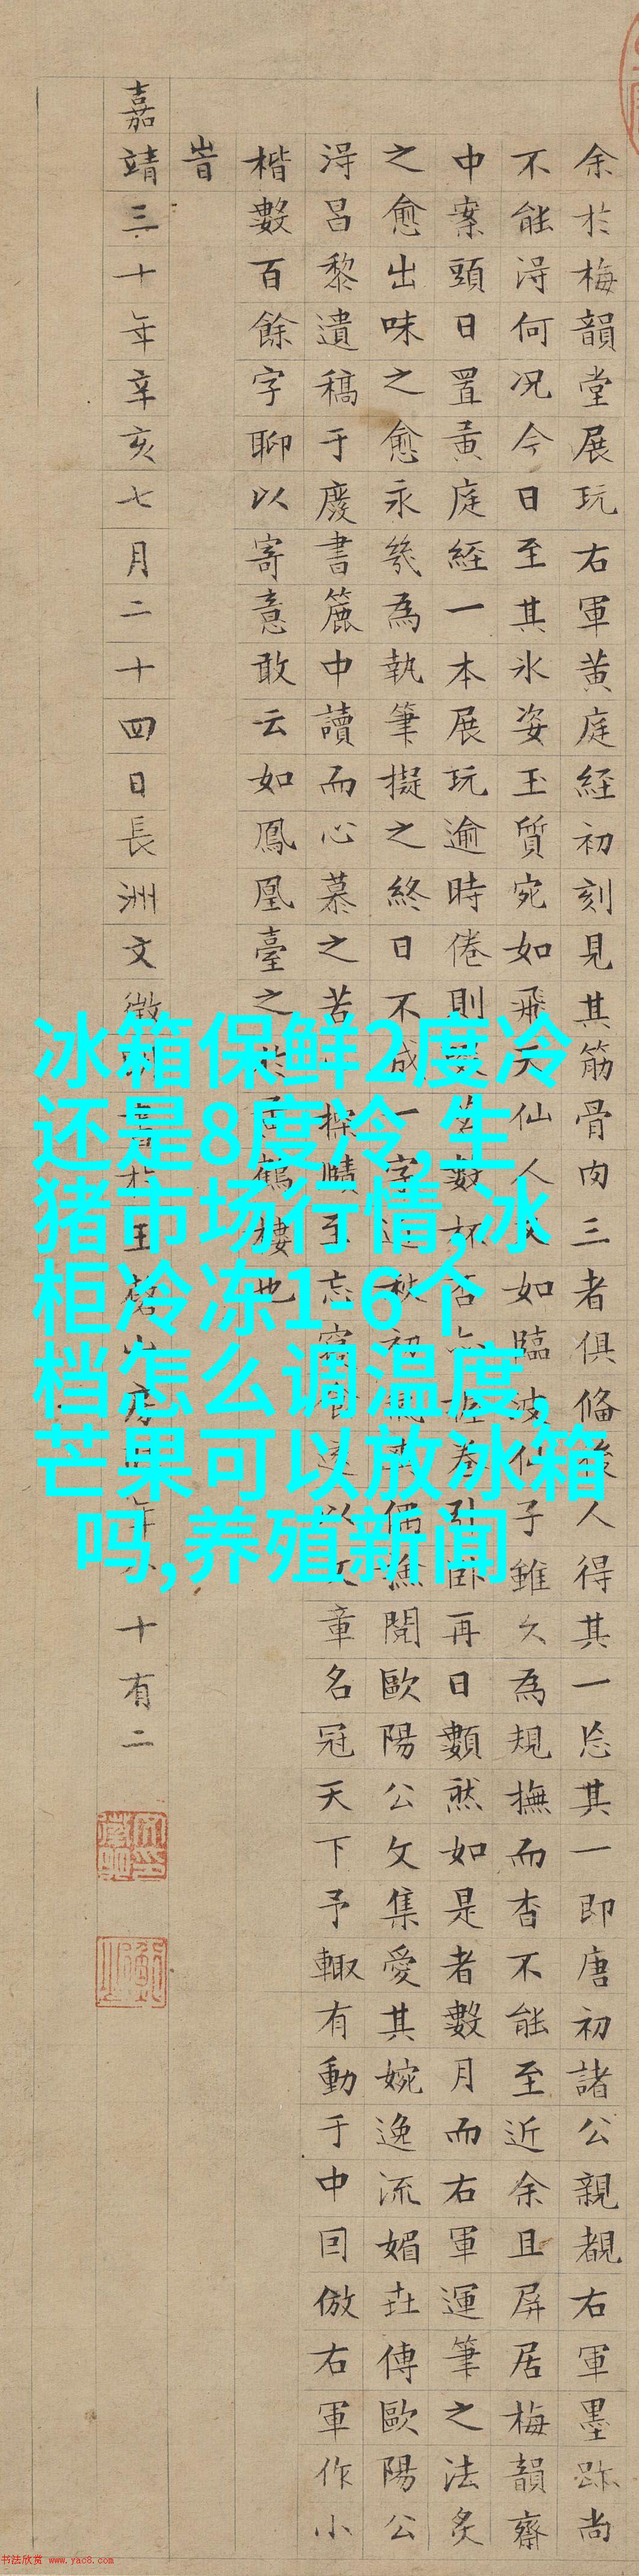 余於梅韻堂展玩右軍黃庭経初刻見其筋骨肉三者俱俻後人得其一忘其一即唐初諸公親覩右軍墨跡尚
不能淂何况今日至其氷姿玉質宛如飛天仙人又如臨波仙子雖久為規撫而杳不能至近余且屏居梅韻齋
中案頭日置黃庭経一本展玩逾時倦則
數杯
再日數㸐如是者數月而右軍運筆之法炙
之愈出味之愈永幾為執筆擬之終日不成一字
秋初
偶
閱歐陽公文集愛其婉逸流媚垚傳歐陽公
淂昌黎遺稿于廢書簏中讀而心慕之苦
探賾至忘寢食遂以文章名冠天下予輙有動于中囙倣右軍作小
楷數百餘字聊以寄意敢云如鳳凰臺之於
鶴樓也
旹
嘉靖三十年辛亥七月二十四日長洲文徵明書於玉磬山房時年八十有二
冰箱保鲜2度冷
还是8度冷,生
猪市场行情,冰
柜冷冻1-6个
档怎么调温度,
芒果可以放冰箱
吗,养殖新闻
书法欣赏 www.yac8.com